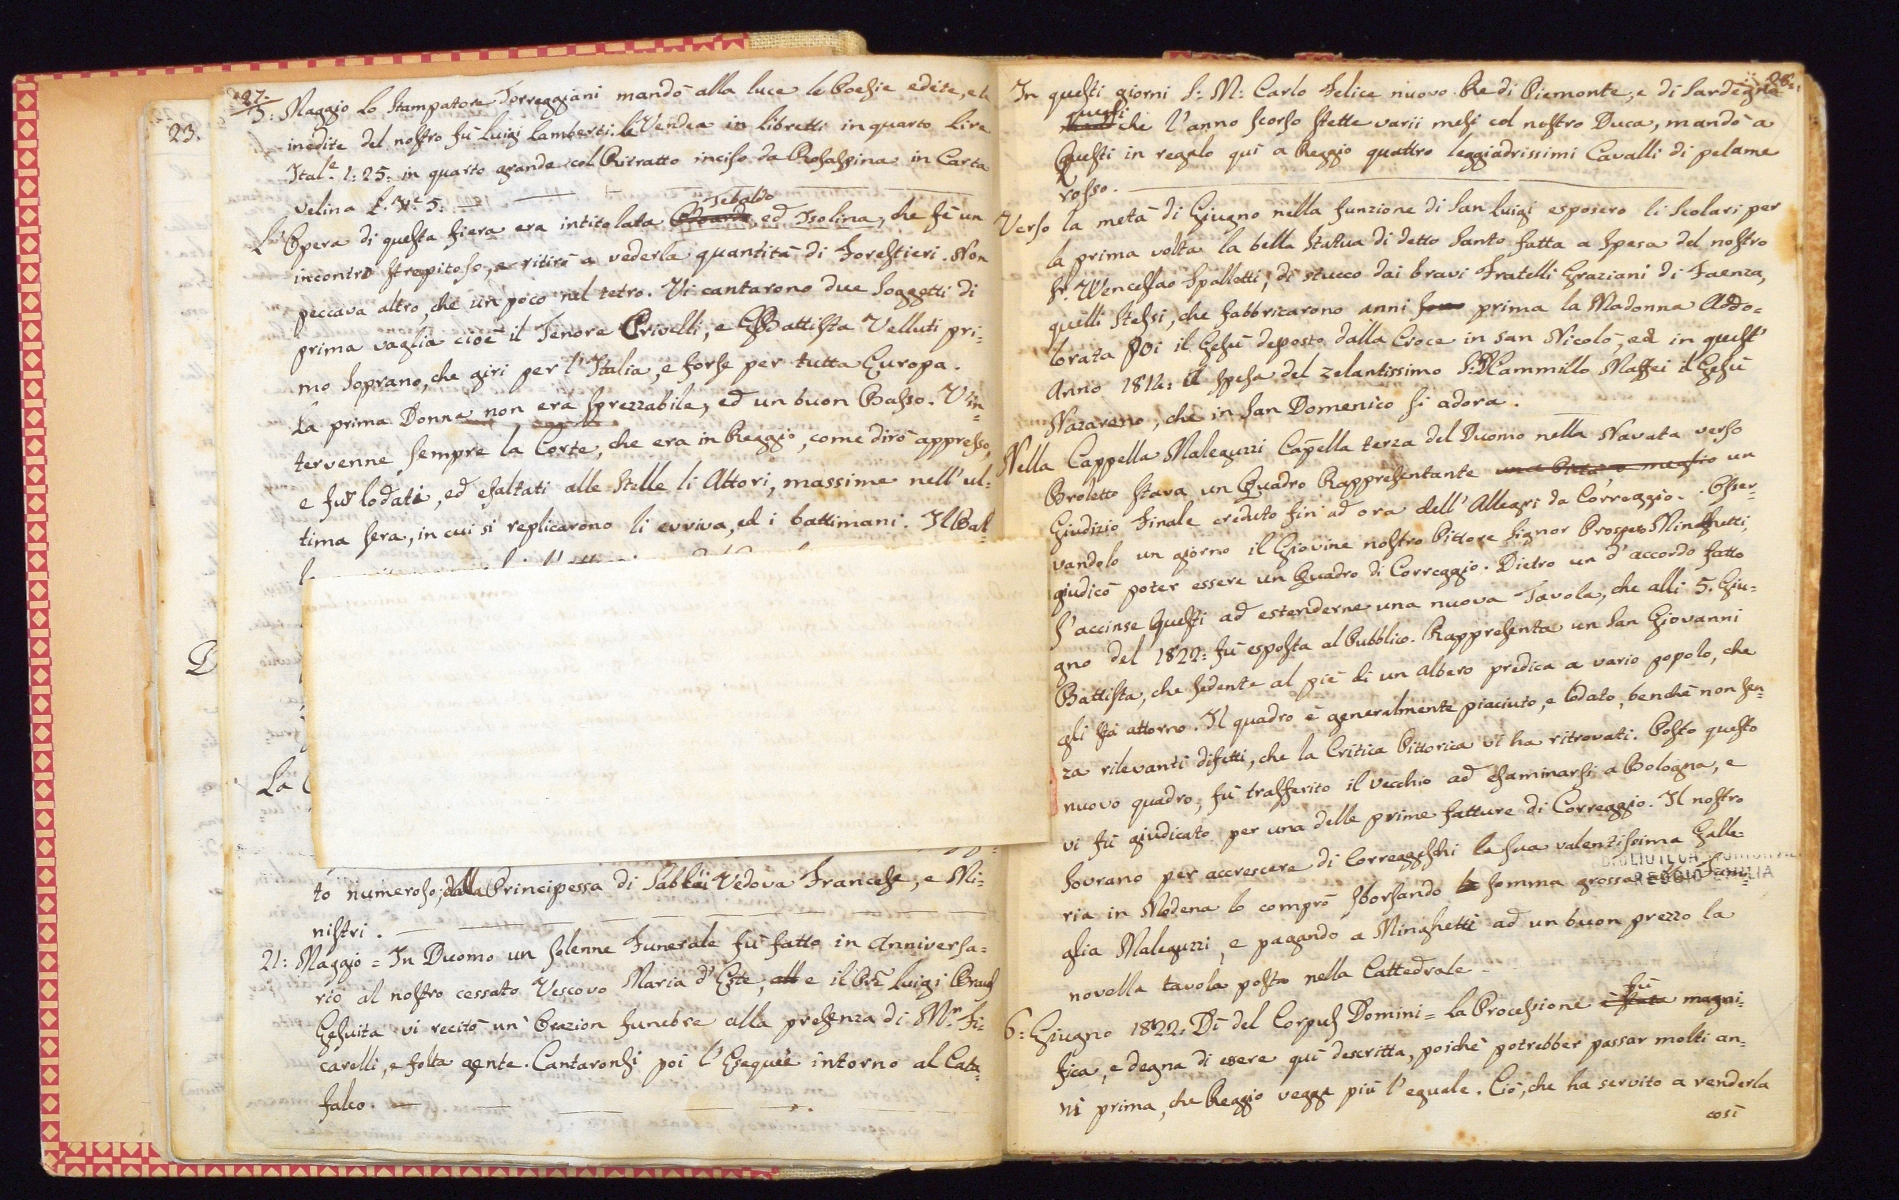 27.
23.
3: Maggio lo Stampatore Torreggiani mandò alla luce le Poesie edite, e le
inedite del nostro fù Luigi Lamberti: le Vendea in libretti in quarto Lire
Ital.e l: 25: in quarto grande col Ritratto inciso da Rosaspina in Carta
velina
Tebaldo
L'Opera di questa fiera era intitolata ed Isolina, che fè un
incontro strepitoso, e ritirò a vederla quantità di Forestieri. Non
peccava altro, che un poco nel tetro. Vi cantarono due Soggetti di
prima vaglia cioè il Tenore Crivelli, e GBattista Velluti pri-
mo Soprano, che giri per l'Italia, e forse per tutta Europa.
La prima Donna non era sprezzabile, ed un buon Basso. V'in-
tervenne sempre la Corte, che era in Reggio, come dirò appresso,
e fur lodati, ed esaltati alle Stelle li Attori, massime nell'ul-
tima sera, in cui si replicarono li evviva, ed i battimani. Il Bal-
La
to numeroso, dalla Principessa di Vedova Francese, e Mi-
nistri.
21: Maggio = In Duomo un solenne Funerale fù fatto in Anniversa-
rio al nostro cessato Vescovo Maria d'Este, e il Pre Luigi
Gesuita vi recitò un' Orazion funebre alla presenza di Mr. Fi-
carelli, e folta gente. Cantaronsi poi l'Esequie intorno al Cata-
falco.
28.
In questi giorni S: M: Carlo Felice nuovo Re di Piemonte, e di Sardegna
quegli
che l'anno scorso stette varii mesi col nostro Duca, mandò a
Questi in regalo quì a Reggio quattro leggiadrissimi Cavalli di pelame
rosso.
Verso la metà di Giugno nella funzione di San Luigi esposero li Scolari per
la prima volta la bella Statua di detto Santo fatta a spesa del nostro
Sr. Wenceslao Spalletti, di stucco dai bravi Fratelli Graziani di Faenza,
quelli stessi, che fabbricarono anni prima la Madonna Addo-
lorata poi il Gesù deposto dalla Croce in San Nicolò, ed in quest'
Anno 1812: a spesa del zelantissimo Cammillo Maffei il Gesù
Nazareno, che in San Domenico si adora.
Nella Cappella Maleguzzi Capella terza del Duomo nella Navata verso
Broletto stava un Quadro Rappresentante una o meglio un
Giudizio Finale creduto fin'ad ora dell'Allegri da Correggio. Osser-
vandolo un giorno il Giovine nostro Pittore Signor Prospero Minghetti,
giudicò poter essere un Quadro di Correggio. Dietro un d'accordo fatto
s'accinse Questi ad estenderne una nuova Tavola, che alli 5. Giu-
gno del 1822: fù esposta al Pubblico. Rappresenta un San Giovanni
Battista, che sedente al piè di un albero predica a vario popolo, che
gli stà attorno. Il quadro è generalmente piaciuto, e lodato, benchè non sen-
za rilevanti difetti, che la Critica Pittorica vi ha ritrovati. Posto questo
nuovo quadro, fù trasferito il vecchio ad esaminarsi a Bologna, e
vi fù giudicato per una delle prime fatture di Correggio. Il nostro
Sovrano per accrescere di Correggeschi la sua valentissima Galle-
ria in Modena lo comprò sborsando somma grossa alla Fami-
glia Maleguzzi, e pagando a Minghetti ad un buon prezzo la
novella tavola posta nella Cattedrale.
fù
6: Giugno 1822: Dì del Corpus Domini = la Processione è stata magni-
fica, e degna di essere quì descritta, poichè potrebber passar molti an-
ni prima, che Reggio vegga più l'eguale. Ciò, che ha servito a renderla
così
BIBLIOTECA MUNICIPALE
REGGIO EMILIA